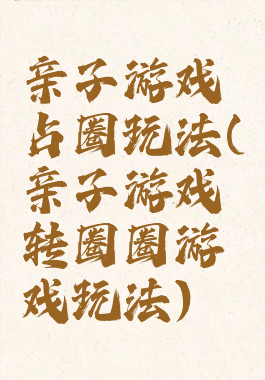 亲子游戏
占圈玩法(
亲子游戏
转圈圈游
戏玩法)